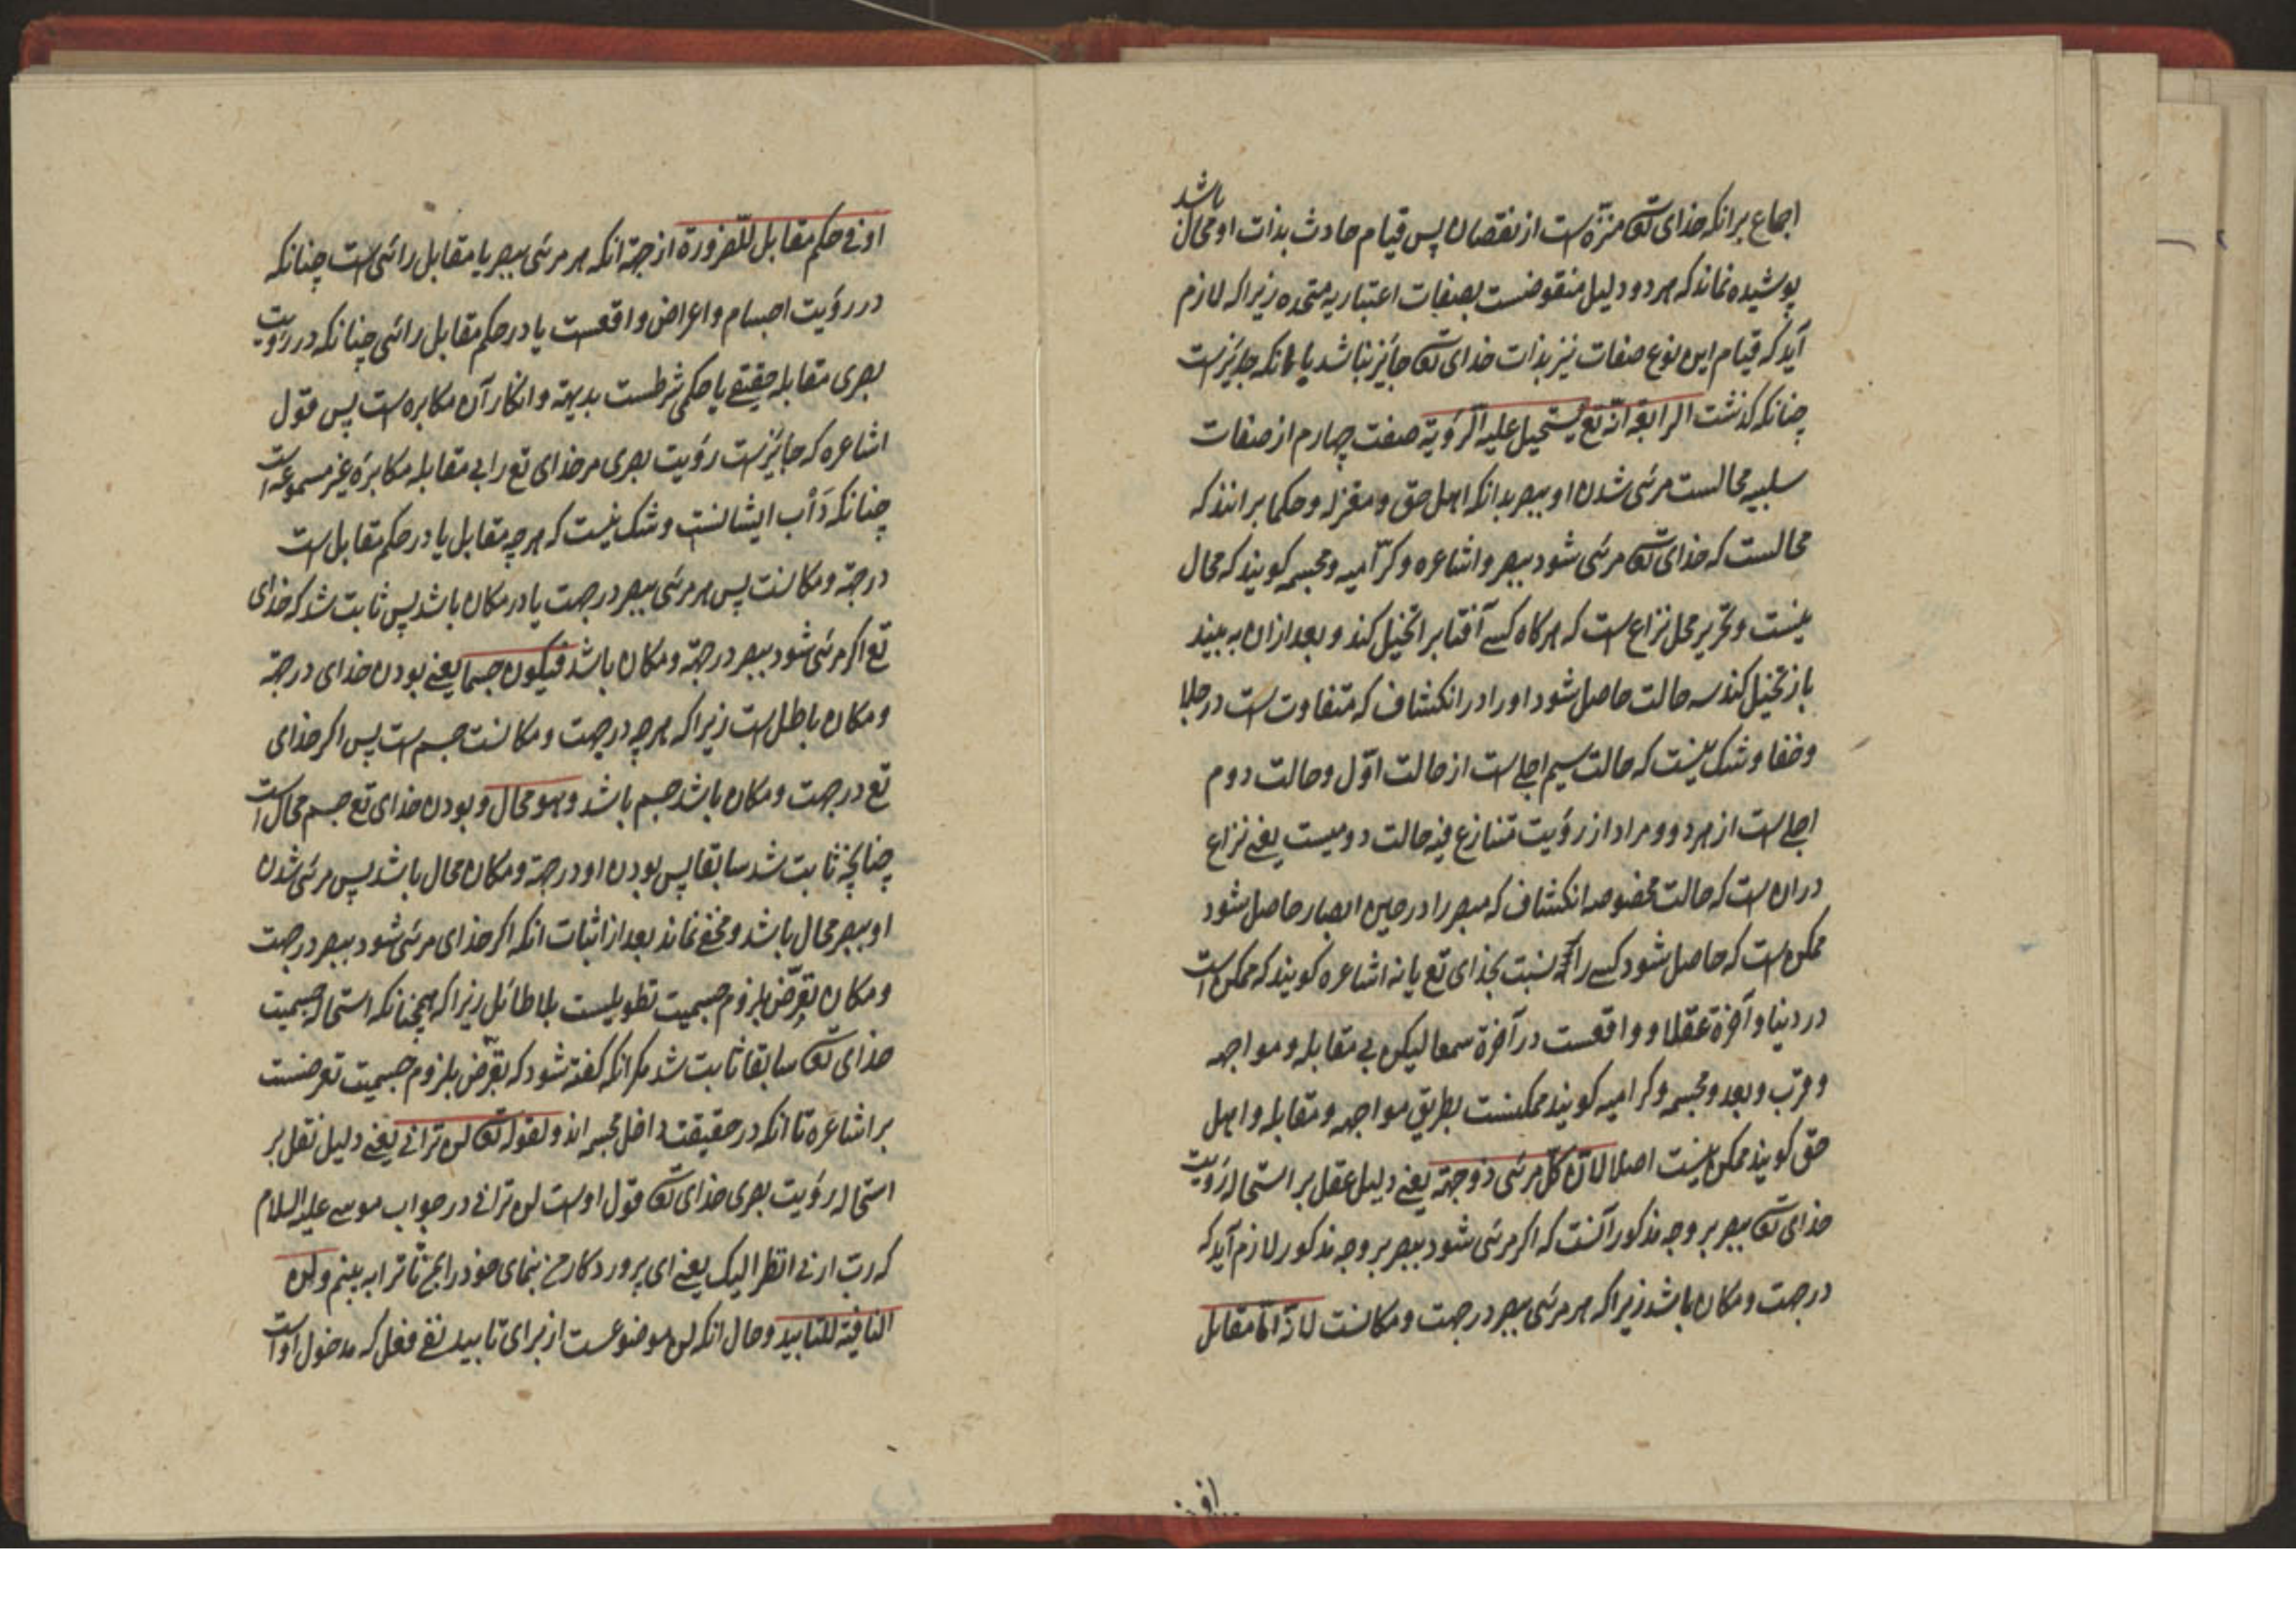 اجماع برانکه خدای تعه منزه است از نقصان پس قیام حادث بذات او محال باشد
پوشیده نماند که هر دو دلیل منقوضست بصفات اعتباریه متجدده زیرا که لازم
آید که قیام این نوع صفات نیز بذات خدای تعه جایز نباشد با انکه جایزست
چنانکه کذشت الرابعة انه تع یستحیل علیه الرؤیة صفت چهارم از صفات
سلبیه محالست مرئی شدن او ببصر بدانکه اهل حق و معتزله و حکما برانند که
محالست که خدای تعه مرئی شود ببصر و اشاعره و کرّامیه و مجسمه کویند که محال
نیست و تحریر محل نزاع است که هرکاه کسی آفتابرا تخیل کند و بعد ازان به بیند
باز تخیل کند سه حالت حاصل شود او را در انکشاف که متفاوت است در جلا
و خفا و شک نیست که حالت سیم اجلی است از حالت اوّل و حالت دوم
اجلی است از هر دو و مراد از رؤیت متنازع فیه حالت دومیست یعنی نزاع
دران است که حالت مخصوصه انکشاف که مبصر را در حین ابصار حاصل شود
ممکن است که حاصل شود کسی را نسبت بخدای تع یا نه اشاعره کویند که ممکن است
در دنیا و آخرة عقلا و واقعست در آخرة سمعا لیکن بی مقابله و مواجهه
و قرب و بعد و مجسمه و کرامیه کویند ممکنست بطریق مواجهه و مقابله و اهل
حق کویند ممکن نیست اصلا لان کل مرئی ذو جهة یعنی دلیل عقل بر استحاله رؤیت
خدای تعه ببصر بر وجه مذکور آنست که اکر مرئی شود ببصر بر وجه مذکور لازم آید که
در جهت و مکان باشد زیرا که هر مرئی ببصر در جهت و مکانست لانه اما مقابل
او فی حکم مقابل للضرورة از جهة انکه هر مرئی ببصر یا مقابل رائی است چنانکه
در رؤیت اجسام و اعراض واقعست یا در حکم مقابل رائی چنانکه در رؤیت
بصری مقابله حقیقی یا حکمی شرطست بدیهة و انکار آن مکابره است پس قول
اشاعره که جایزست رؤیت بصری مر خدای تع را بی مقابله مکابرۀ غیر مسموعه است
چنانکه دَأب ایشانست و شک نیست که هر چه مقابل یا در حکم مقابل است
در جهة و مکانست پس هر مرئی ببصر در جهت یا در مکان باشد پس ثابت شد که خدای
تع اکر مرئی شود ببصر در جهة و مکان باشد فیکون جسما یعنی بودن خدای در جهة
و مکان باطل است زیرا که هر چه در جهت و مکانست جسم است پس اکر خدای
تع در جهت و مکان باشد جسم باشد وهو محال و بودن خدای تع جسم محال است
چنانچه ثابت شد سابقا پس بودن او در جهة و مکان محال باشد پس مرئی شدن
او ببصر محال باشد و مخفی نماند بعد از اثبات انکه اکر خدای مرئی شود ببصر در جهت
و مکان تعرّض بلزوم جسمیت تطویلست بلا طائل زیرا که همچنانکه استحاله جسمیت
خدای تعه سابقا ثابت شد مکر انکه کفته شود که تعرّض بلزوم جسمیت تعرضست
بر اشاعره تا آنکه در حقیقت داخل مجسمه اند ولقوله تعه لن ترانی یعنی دلیل نقل بر
استحاله رؤیت بصری خدای تعه قول اوست لن ترانی در جواب موسی علیه السلام
که رب ارنی انظر الیک یعنی ای پروردکار من بنمای خود را بمن تا ترا به بینم ولن
النافیة للتابید و حال انکه لن موضوعست از برای تابید نفی فعل که مدخول او است